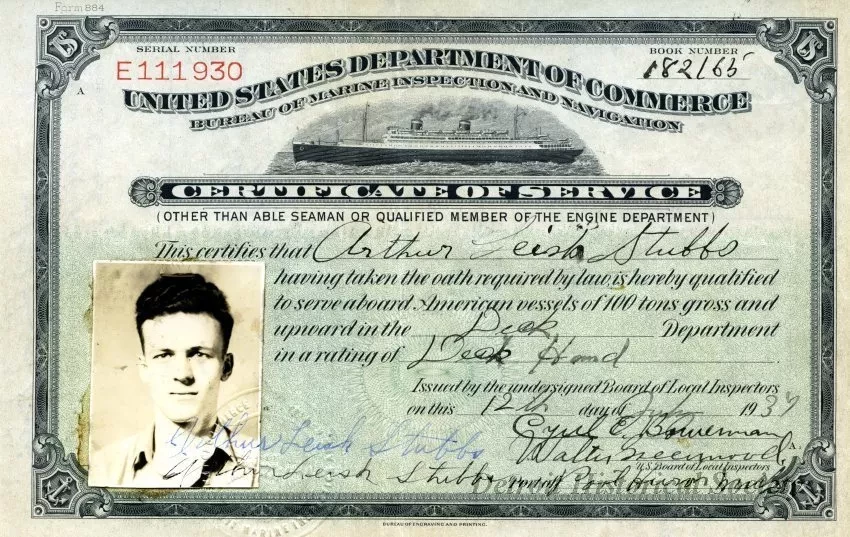 Form 884
SERIAL NUMBER
E111930
BOOK NUMBER
182165
A
UNITED STATES DEPARTMENT OF COMMERCE
BUREAU OF MARINE INSPECTION AND NAVIGATION
CERTIFICATE OF SERVICE
(OTHER THAN ABLE SEAMAN OR QUALIFIED MEMBER OF THE ENGINE DEPARTMENT)
This certifies that Arthur Leish Stubbs
having taken the oath required by law, is hereby qualified
to serve aboard American vessels of 100 tons gross and
upward in the Deck Department
in a rating of Deck Hand
Issued by the undersigned Board of Local Inspectors
on this 12th day of 1937
Cyril E. Bowerman
Walter Greenwood
A
U.S. Board of Local Inspectors
Arthur Leish Stubbs
Arthur Leish Stubbs
port of Port Huron Mich
Detroit Historical Society
BUREAU OF ENGRAVING AND PRINTING.